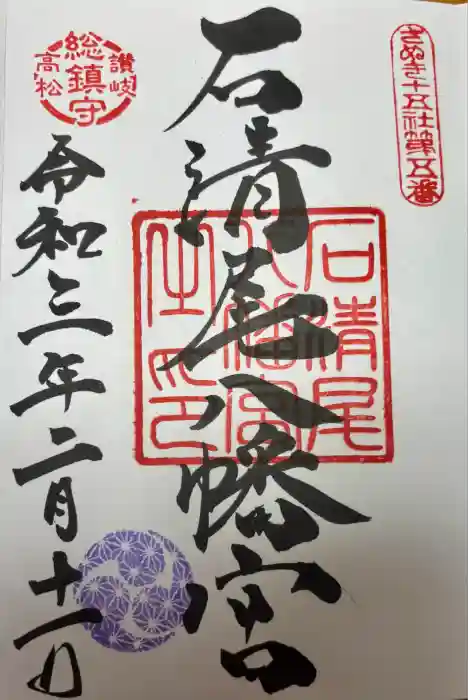 さぬき十五社第五番
石清尾八幡宮
石清尾
八幡宮
主印
讃岐
総鎮守
高松
令和三年二月十一日